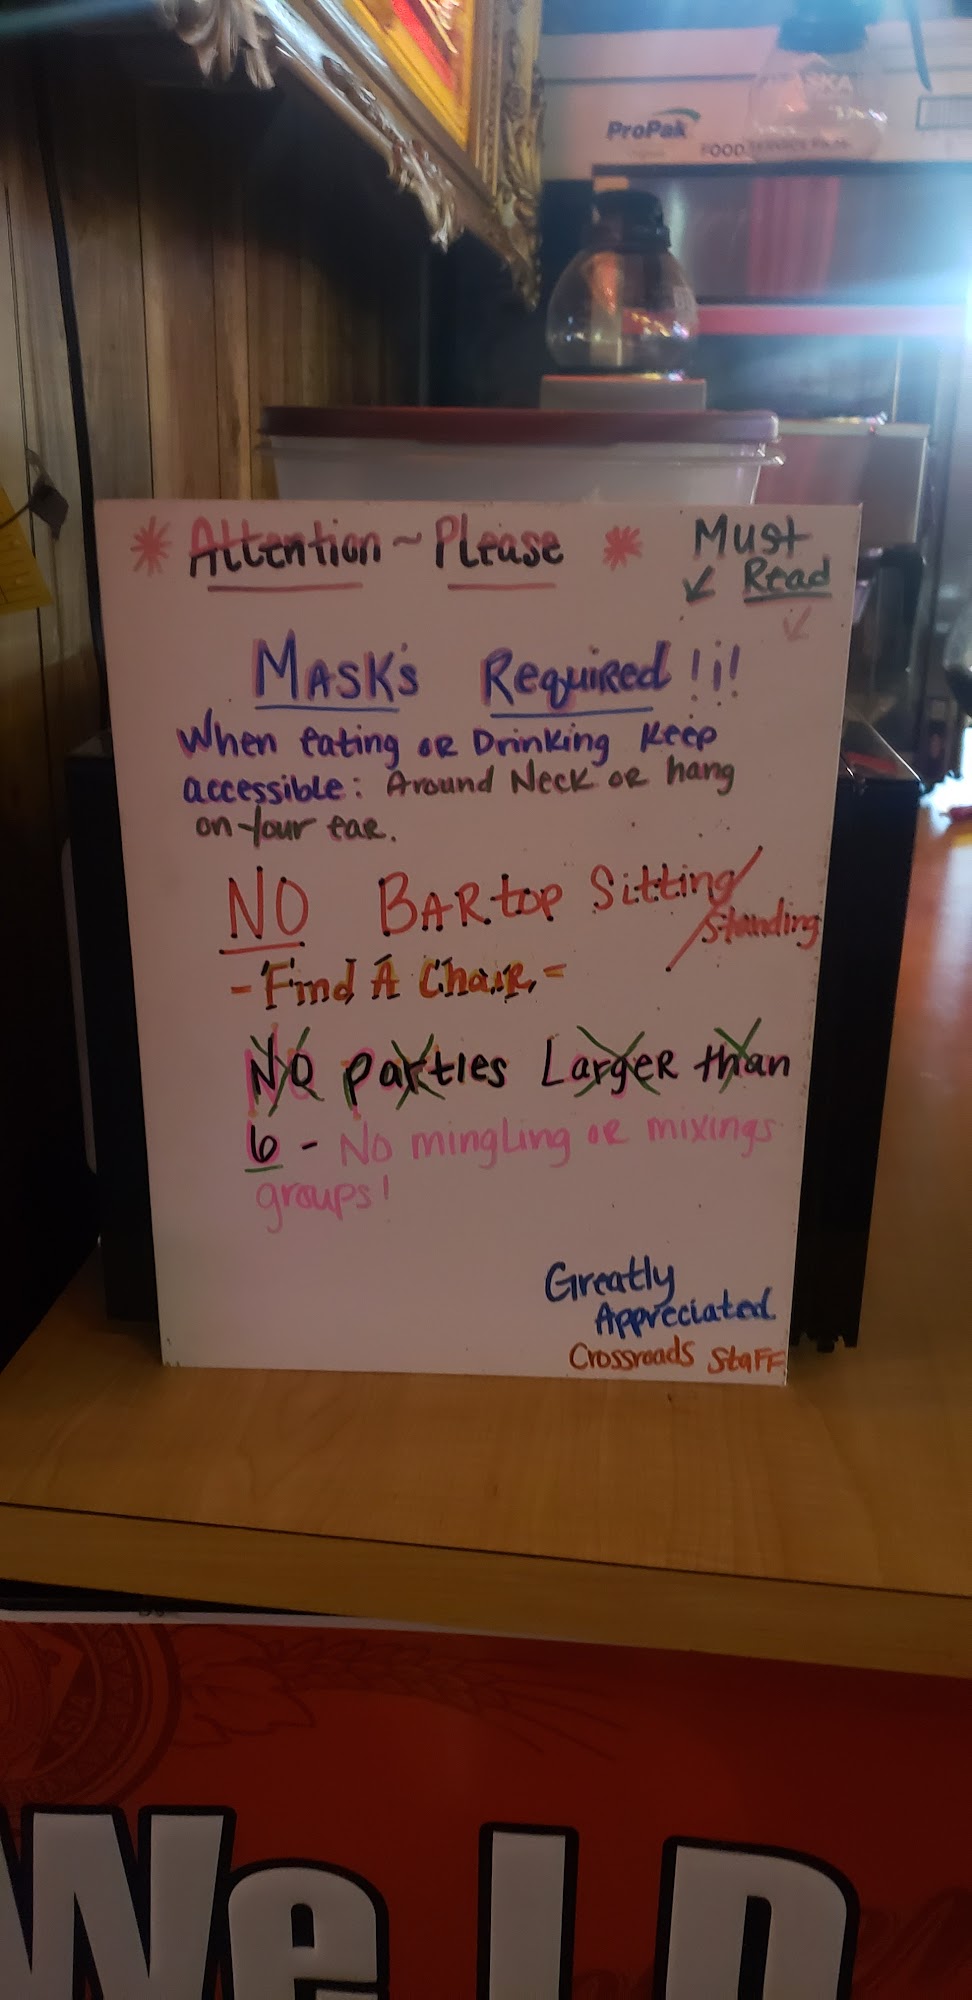 ProPak
FOOD SERVICE FILM
* Attention ~ Please *
Must
Read
Mask's Required!¡!
When eating or Drinking Keep
accessible: Around Neck or hang
on your ear.
NO BARtop Sitting/
Standing
- Find A Chair -
NO parties Larger than
6 - No mingling or mixings
groups!
Greatly
Appreciated
Crossroads Staff
We I D